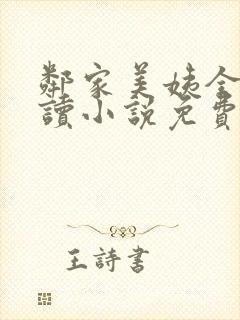 鄰家美姨全
讀小說免費
王詩書